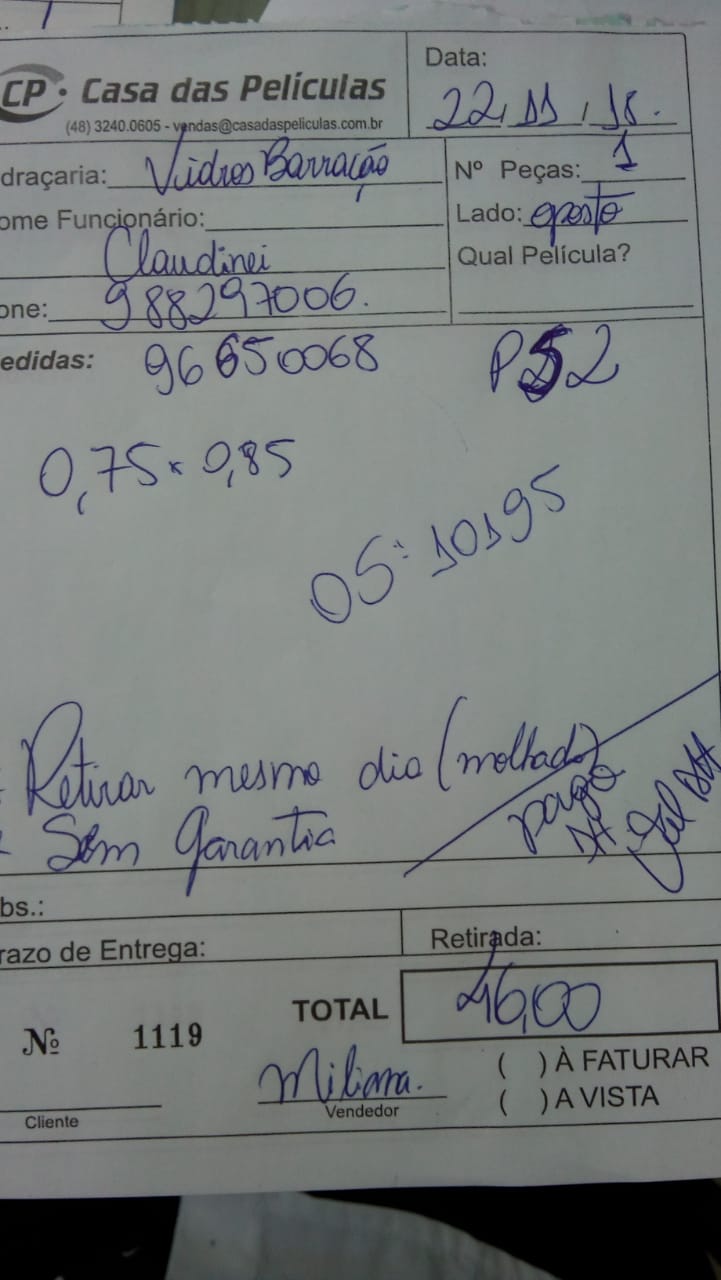 CP. Casa das Películas
(48) 3240.0605 - vendas@casadaspeliculas.com.br
Data:
22, 11, 18.
draçaria: Vidros Barracão
Nº Peças: 1
ome Funcionário:
Lado: oposto
Claudinei
Qual Película?
one: 988297006.
edidas: 96650068
P52
0,75 x 0,85
OS: 10195
Retirar mesmo dia (molhado)
Sem garantia
pago
bs.:
razo de Entrega:
Retirada:
TOTAL 46,00
Nº 1119
( ) À FATURAR
Miliana.
( ) A VISTA
Vendedor
Cliente